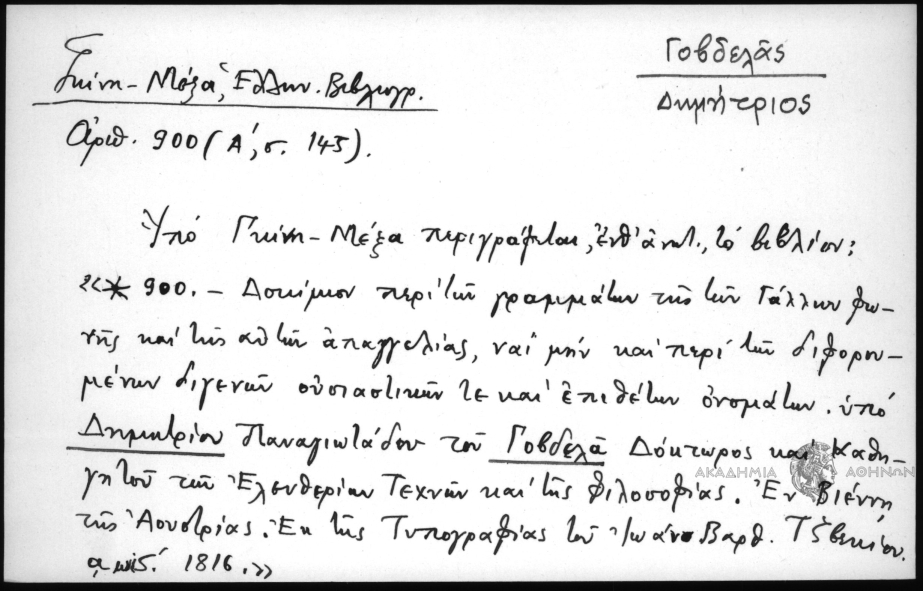 Γοβδελᾶς
Δημήτριος
Γκίνη - Μέξα, Ἑλλην. Βιβλιογρ.
Ἀριθ. 900 (Α΄, σ. 145).
Ὑπό Γκίνη - Μέξα περιγράφεται, ἐνθ' ἀνωτ., τό βιβλίον:
«* 900. - Δοκίμιον περί τῶν γραμμάτων τῆς τῶν Γάλλων φω-
νῆς καί τῆς αὐτῶν ἀπαγγελίας, ναί μήν καί περί τῶν διφορου-
μένων διγενῶν οὐσιαστικῶν τε καί ἐπιθέτων ὀνομάτων. ὑπό
Δημητρίου Παναγιωτάδου τοῦ Γοβδελᾶ Δόκτωρος καί Καθη-
γητοῦ τῶν Ἐλευθερίων Τεχνῶν καί τῆς Φιλοσοφίας. Ἐν Βιέννῃ
τῆς Αουστρίας. Ἐκ τῆς Τυπογραφίας τοῦ Ἰωάν. Βαρθ. Τζβεκίου.
αωις΄. 1816.»
ΑΚΑΔΗΜΙΑ ΑΘΗΝΩΝ